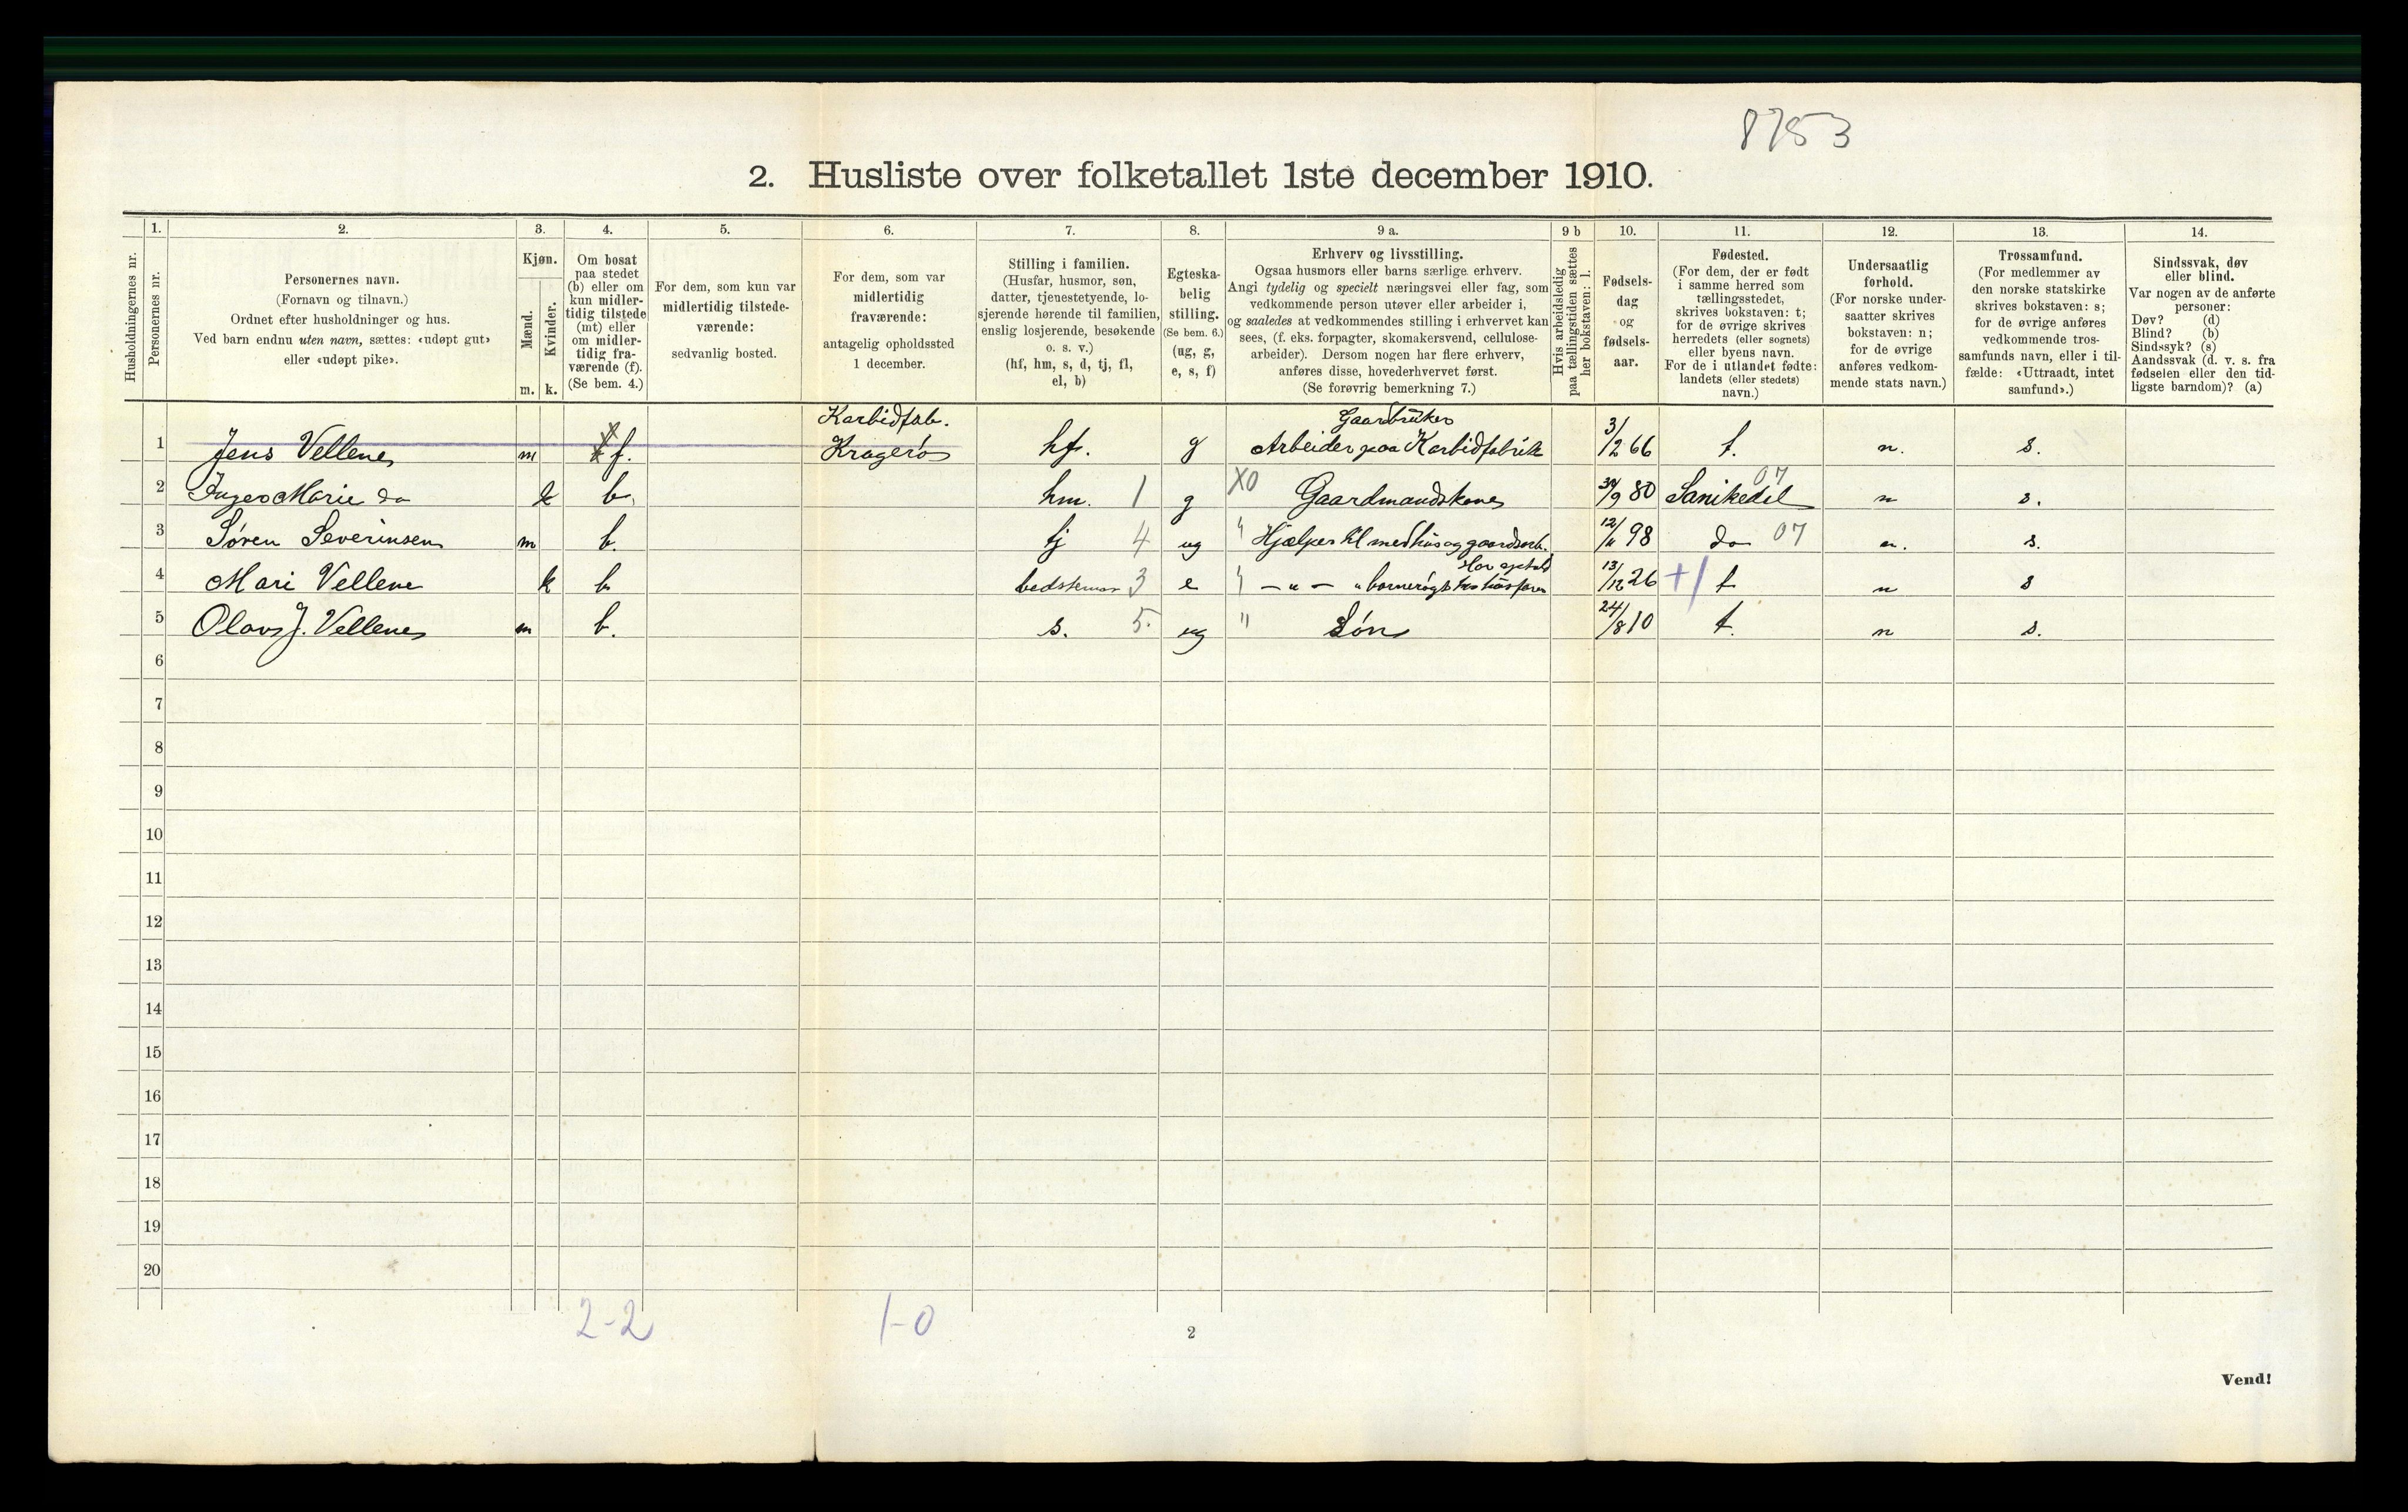 8753
2. Husliste over folketallet 1ste december 1910.
Husholdningernes nr.
1.
Personernes nr.
2.
Personernes navn.
(Fornavn og tilnavn.)
Ordnet efter husholdninger og hus.
Ved barn endnu uten navn, sættes: «udøpt gut»
eller «udøpt pike».
3.
Kjøn.
Mænd.
Kvinder.
m. k.
4.
Om bosat
paa stedet
(b) eller om
kun midler-
tidig tilstede
(mt) eller
om midler-
tidig fra-
værende (f).
(Se bem. 4.)
5.
For dem, som kun var
midlertidig tilstede-
værende:
sedvanlig bosted.
6.
For dem, som var
midlertidig
fraværende:
antagelig opholdssted
1 december.
7.
Stilling i familien.
(Husfar, husmor, søn,
datter, tjenestetyende, lo-
sjerende hørende til familien,
enslig losjerende, besøkende
o. s. v.)
(hf, hm, s, d, tj, fl,
el, b)
8.
Egteska-
belig
stilling.
(Se bem. 6.)
(ug, g,
e, s, f)
9 a.
Erhverv og livsstilling.
Ogsaa husmors eller barns særlige erhverv.
Angi tydelig og specielt næringsvei eller fag, som
vedkommende person utøver eller arbeider i,
og saaledes at vedkommendes stilling i erhvervet kan
sees, (f. eks. forpagter, skomakersvend, cellulose-
arbeider). Dersom nogen har flere erhverv,
anføres disse, hovederhvervet først.
(Se forøvrig bemerkning 7.)
9 b
Hvis arbeidsledig
paa tællingstiden sættes
her bokstaven: l.
10.
Fødsels-
dag
og
fødsels-
aar.
11.
Fødested.
(For dem, der er født
i samme herred som
tællingsstedet,
skrives bokstaven: t;
for de øvrige skrives
herredets (eller sognets)
eller byens navn.
For de i utlandet fødte:
landets (eller stedets)
navn.)
12.
Undersaatlig
forhold.
(For norske under-
saatter skrives
bokstaven: n;
for de øvrige
anføres vedkom-
mende stats navn.)
13.
Trossamfund.
(For medlemmer av
den norske statskirke
skrives bokstaven: s;
for de øvrige anføres
vedkommende tros-
samfunds navn, eller i til-
fælde: «Uttraadt, intet
samfund».)
14.
Sindssvak, døv
eller blind.
Var nogen av de anførte
personer:
Døv? (d)
Blind? (b)
Sindssyk? (s)
Aandssvak (d. v. s. fra
fødselen eller den tid-
ligste barndom)? (a)
Karbidfab. Gaarbruker
1 Jens Vellene m f. Kragerø hf. g Arbeider paa Karbidfabrik 3/2 66 t. n. s.
2 Inger Marie do k b. hm. 1 g XO Gaardmandskone 30/9 80 Sanikedel 07 n s.
3 Søren Severinsen m b. tj 4 ug " Hjælper til med hus og gaardsarb. 12/11 98 do 07 n. s.
4 Mari Vellene k b bedstemor 3 e " — " — 13/12 26 + t n s
5 Olav J. Vellene m b. s. 5. ug " Søn 24/8 10 t. n s.
6
7
8
9
10
11
12
13
14
15
16
17
18
19
20
2-2 1-0
2
Vend!